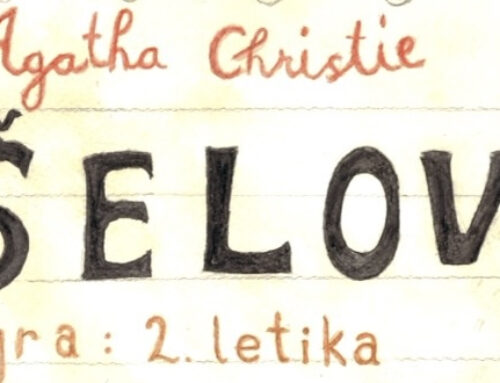 Agatha Christie
ŠELOV
gra: 2. letika